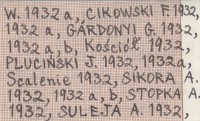 W. 1932 a,, CIKOWSKI F 1932,
1932 a, GÁRDONYI G. 1932,
1932 a, b, Kościół 1932,
PLUCIŃSKI J. 1932, 1932a,
Scalenie 1932, SIKORA A.
1932, 1932 a, b, STOPKA A.
1932, SULEJA A. 1932,